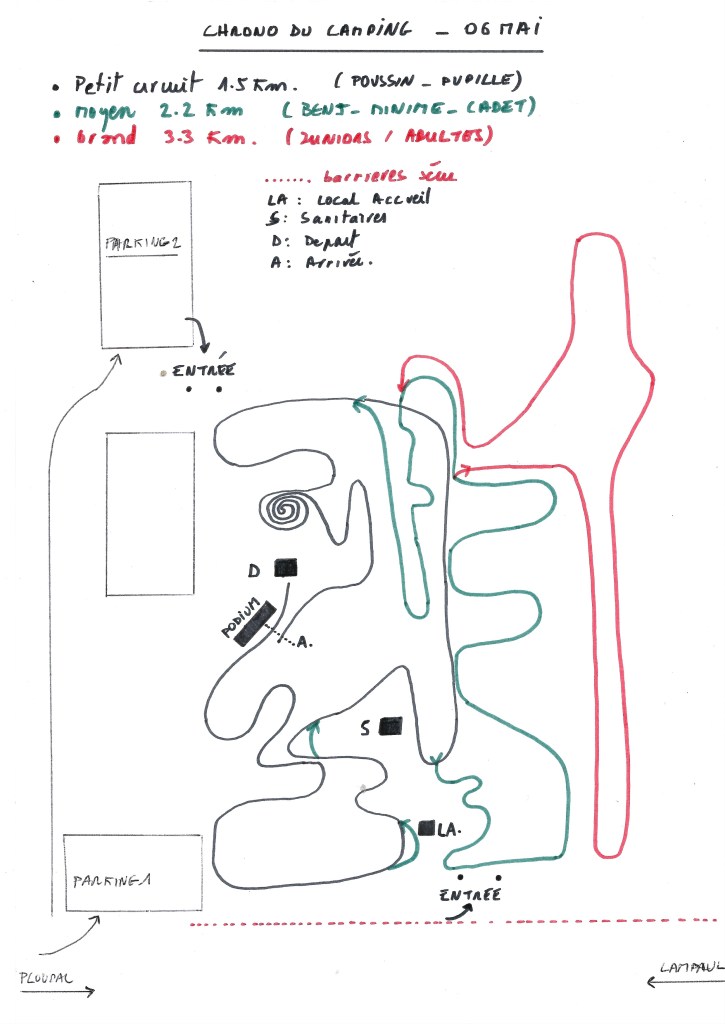 CHRONO DU CAMPING - 06 MAI
• Petit circuit 1.5 Km. (POUSSIN - PUPILLE)
• moyen 2.2 Km (BENJ - MINIME - CADET)
• Grand 3.3 Km. (JUNIORS / ADULTES)
....... barrières sécu
LA : Local Accueil
S : Sanitaires
D : Depart
A : Arrivée.
PARKING 2
ENTRÉE
D
PODIUM
A.
S
LA.
PARKING 1
ENTRÉE
PLOUDAL
LAMPAUL